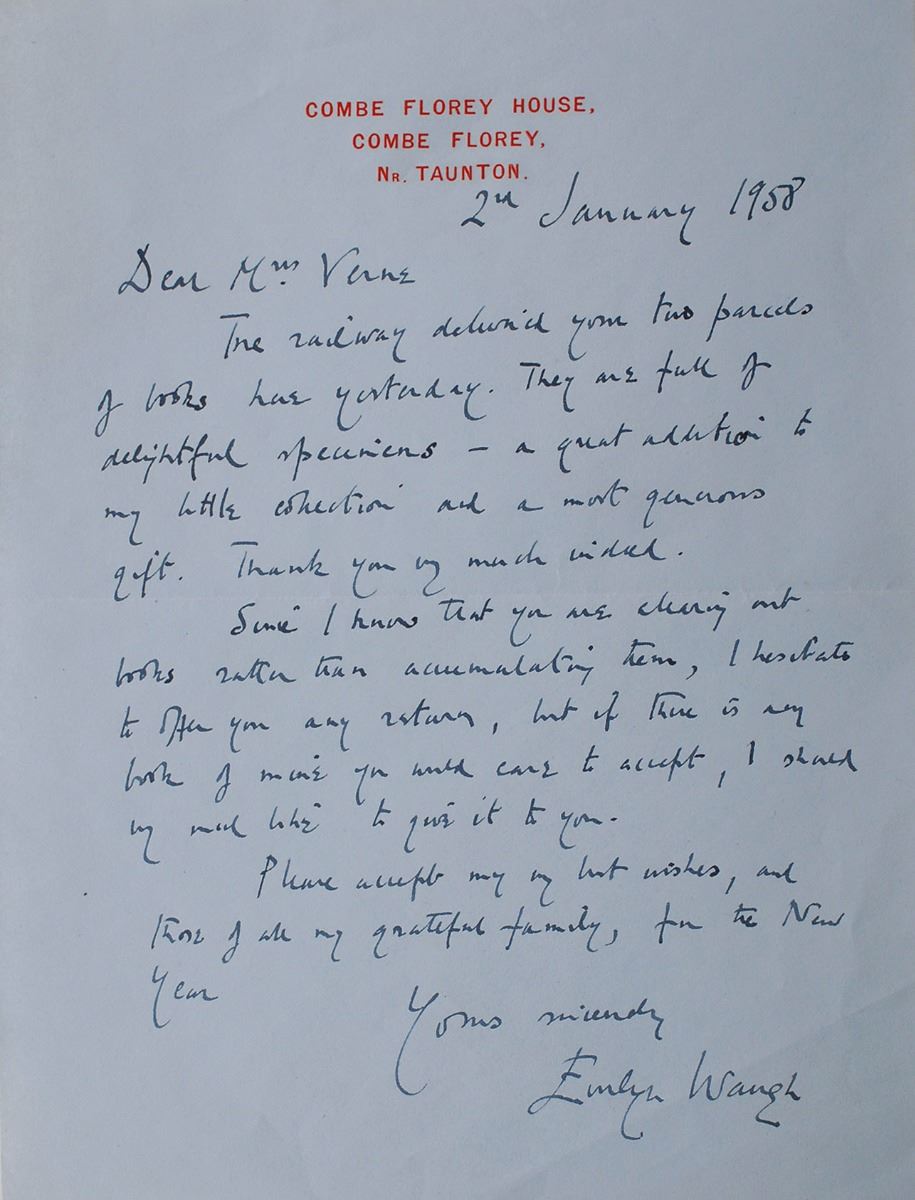 COMBE FLOREY HOUSE,
COMBE FLOREY,
NR. TAUNTON.
2nd January 1958
Dear Mrs. Verne
The railway deliver'd your two parcels
of books here yesterday. They are full of
delightful specimens – a great addition to
my little collection and a most generous
gift. Thank you very much indeed.
Since I know that you are clearing out
books rather than accumulating them, I hesitate
to offer you any return, but if there is any
book of mine you would care to accept, I should
very much like to give it to you.
Please accept my very best wishes, and
those of all my grateful family, for the New
Year
Yours sincerely
Evelyn Waugh